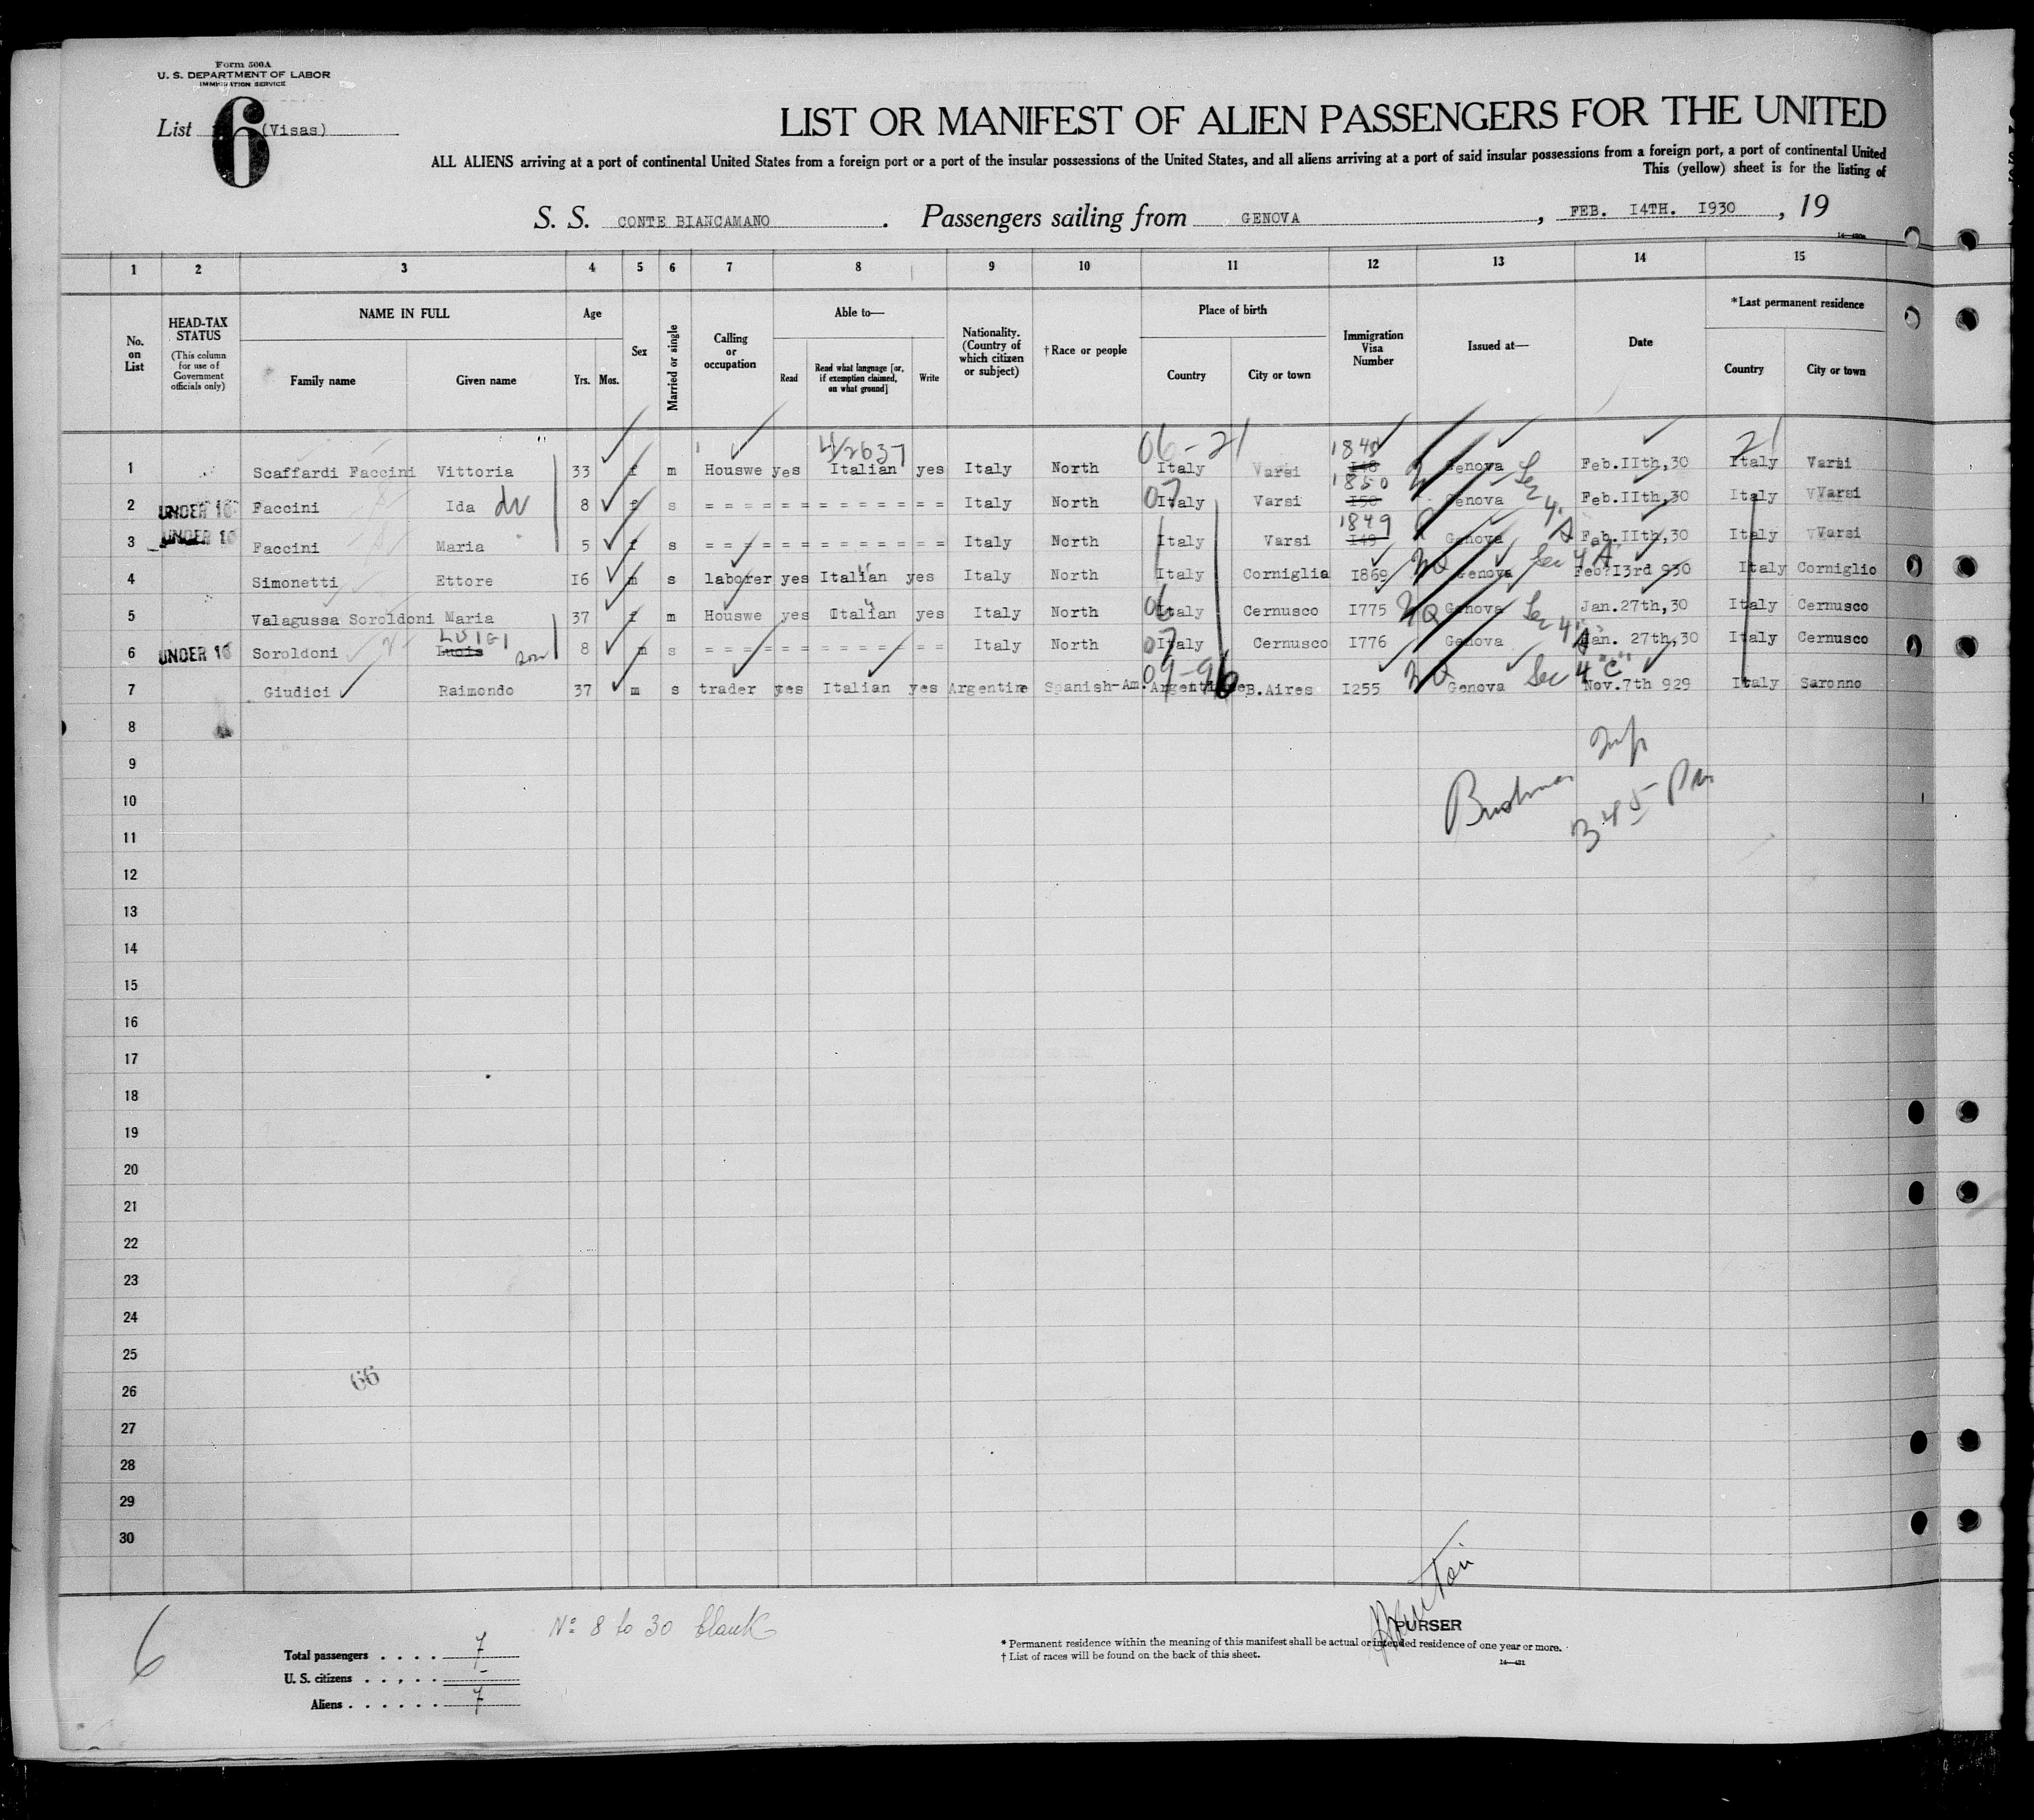 Form 500A
U. S. DEPARTMENT OF LABOR
IMMIGRATION SERVICE
List 6 (Visas)
LIST OR MANIFEST OF ALIEN PASSENGERS FOR THE UNITED
ALL ALIENS arriving at a port of continental United States from a foreign port or a port of the insular possessions of the United States, and all aliens arriving at a port of said insular possessions from a foreign port, a port of continental United
This (yellow) sheet is for the listing of
S. S. CONTE BIANCAMANO . Passengers sailing from GENOVA , FEB. I4TH. I930 , 19
1 2 3 4 5 6 7 8 9 10 11 12 13 14 15
No. on List
HEAD-TAX STATUS (This column for use of Government officials only)
NAME IN FULL
Family name Given name
Age
Yrs. Mos.
Sex
Married or single
Calling or occupation
Able to—
Read Read what language [or, if exemption claimed, on what ground] Write
Nationality. (Country of which citizen or subject)
† Race or people
Place of birth
Country City or town
Immigration Visa Number
Issued at—
Date
*Last permanent residence
Country City or town
06-21 1848 21
1 Scaffardi Faccini Vittoria 33 f m Houswe yes Italian yes Italy North Italy Varsi I48 Genova Feb.IIth,30 Italy Varsi
1850
2 UNDER 16 Faccini Ida 8 f s = = = = = = = = = = = = = Italy North 07 Italy Varsi I50 Genova Feb.IIth,30 Italy VVarsi
1849
3 UNDER 16 Faccini Maria 5 f s = = = = = = = = = = = = = Italy North Italy Varsi I49 Genova Feb.IIth,30 Italy VVarsi
4 Simonetti Ettore I6 m s laborer yes Italian yes Italy North Italy Corniglia I869 Genova Sec 4 A Feb?I3rd 930 Italy Corniglio
5 Valagussa Soroldoni Maria 37 f m Houswe yes Italian yes Italy North 06 Italy Cernusco I775 NQ Genova Sec 4 A Jan.27th,30 Italy Cernusco
LUIGI
6 UNDER 16 Soroldoni Luois son 8 m s = = = = = = = = = = = = = Italy North 07 Italy Cernusco I776 Genova Jan. 27th,30 Italy Cernusco
09-96
7 Giudici Raimondo 37 m s trader yes Italian yes Argentine Spanish-Am. Argentine B.Aires I255 NQ Genova Sec 4 "C" Nov.7th 929 Italy Saronno
8
9
10
3 45 Pm
11
12
13
14
15
16
17
18
19
20
21
22
23
24
25
26
66
27
28
29
30
6
No 8 to 30 blank
PURSER
Total passengers . . . . 7
U. S. citizens . . . . . -
Aliens . . . . . . 7
* Permanent residence within the meaning of this manifest shall be actual or intended residence of one year or more.
† List of races will be found on the back of this sheet.
14—431